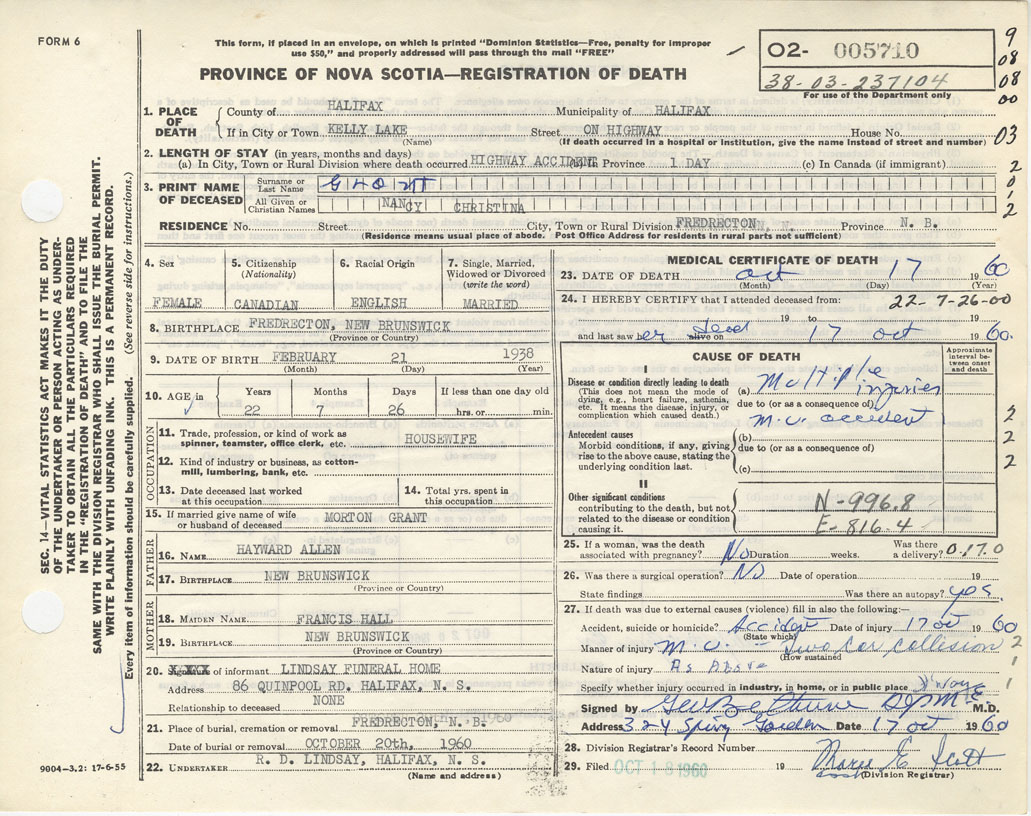 FORM 6
This form, if placed in an envelope, on which is printed "Dominion Statistics—Free, penalty for improper
use $50," and properly addressed will pass through the mail "FREE"
O2- 005710
38-03-237104
For use of the Department only
9
08
08
00
03
2
0
1
2
PROVINCE OF NOVA SCOTIA—REGISTRATION OF DEATH
1. PLACE OF DEATH
County of HALIFAX Municipality of HALIFAX
If in City or Town KELLY LAKE Street ON HIGHWAY House No.
(Name) (If death occurred in a hospital or institution, give the name instead of street and number)
2. LENGTH OF STAY (in years, months and days)
(a) In City, Town or Rural Division where death occurred HIGHWAY ACCIDENT Province 1 DAY (c) In Canada (if immigrant)
3. PRINT NAME OF DECEASED
Surname or Last Name
All Given or Christian Names NANCY CHRISTINA
RESIDENCE No. Street City, Town or Rural Division FREDRECTON, N. Province N. B.
(Residence means usual place of abode. Post Office Address for residents in rural parts not sufficient)
SEC. 14—VITAL STATISTICS ACT MAKES IT THE DUTY
OF THE UNDERTAKER OR PERSON ACTING AS UNDER-
TAKER TO OBTAIN ALL THE PARTICULARS REQUIRED
IN THE "REGISTRATION OF DEATH" AND TO FILE THE
SAME WITH THE DIVISION REGISTRAR WHO SHALL ISSUE THE BURIAL PERMIT.
WRITE PLAINLY WITH UNFADING INK. THIS IS A PERMANENT RECORD.
Every item of Information should be carefully supplied. (See reverse side for instructions.)
4. Sex 5. Citizenship (Nationality) 6. Racial Origin 7. Single, Married, Widowed or Divorced (write the word)
FEMALE CANADIAN ENGLISH MARRIED
8. BIRTHPLACE FREDRECTON, NEW BRUNSWICK
(Province or Country)
9. DATE OF BIRTH FEBRUARY 21 1938
(Month) (Day) (Year)
10. AGE in Years Months Days If less than one day old
22 7 26 hrs. or min.
OCCUPATION
11. Trade, profession, or kind of work as
spinner, teamster, office clerk, etc. HOUSEWIFE
12. Kind of industry or business, as cotton-
mill, lumbering, bank, etc.
13. Date deceased last worked at this occupation 14. Total yrs. spent in this occupation
15. If married give name of wife
or husband of deceased MORTON GRANT
FATHER
16. NAME HAYWARD ALLEN
17. BIRTHPLACE NEW BRUNSWICK
(Province or Country)
MOTHER
18. MAIDEN NAME FRANCIS HALL
19. BIRTHPLACE NEW BRUNSWICK
(Province or Country)
20. of informant LINDSAY FUNERAL HOME
Address 86 QUINPOOL RD. HALIFAX, N. S.
Relationship to deceased NONE
21. Place of burial, cremation or removal FREDRECTON, N. B.
Date of burial or removal OCTOBER 20th, 1960
22. UNDERTAKER R. D. LINDSAY, HALIFAX, N. S.
(Name and address)
9004-3.2: 17-6-55
MEDICAL CERTIFICATE OF DEATH
23. DATE OF DEATH Oct 17 1960
(Month) (Day) (Year)
24. I HEREBY CERTIFY that I attended deceased from: 22-7-26-00
19 to 19
and last saw her dead alive on 17 Oct 1960.
CAUSE OF DEATH
Approximate interval between onset and death
I
Disease or condition directly leading to death
(This does not mean the mode of
dying, e.g., heart failure, asthenia,
etc. It means the disease, injury, or
complication which caused death.)
(a) Multiple injuries
due to (or as a consequence of)
M.V. accident
Antecedent causes
Morbid conditions, if any, giving
rise to the above cause, stating the
underlying condition last.
(b)
due to (or as a consequence of)
(c)
2
2
2
II
Other significant conditions
contributing to the death, but not
related to the disease or condition
causing it.
N-996.8
E-816.4
25. If a woman, was the death
associated with pregnancy? No Duration weeks. Was there a delivery? 0.17.0
26. Was there a surgical operation? No Date of operation 19
State findings Was there an autopsy? yes.
27. If death was due to external causes (violence) fill in also the following:—
Accident, suicide or homicide? Accident Date of injury 17 Oct 1960
(State which)
Manner of injury M.V. - Two Car collision 2
(How sustained)
Nature of injury As Above 1
Specify whether injury occurred in industry, in home, or in public place
Signed by M.D.
Address 324 Spring Garden Date 17 Oct 1960
28. Division Registrar's Record Number
29. Filed OCT 18 1960 19
Scott
(Division Registrar)